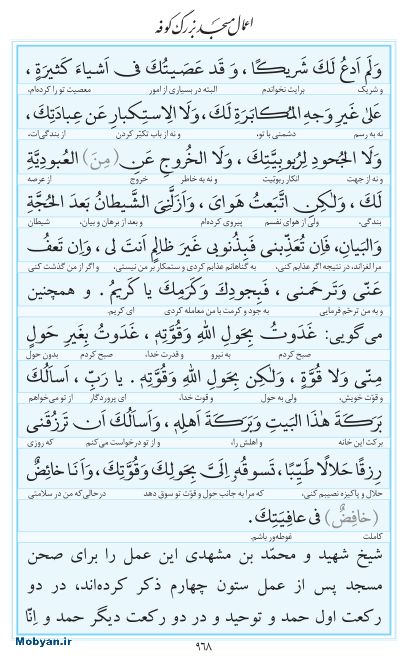 اعمال مسجد بزرگ کوفه
وَلَم اَدعُ لَكَ شَریكًا ، وَ قَد عَصَیتُكَ فی اَشیاءَ كَثیرَةٍ ،
و شریک برایت نخواندم البته در بسیاری از امور معصیت تو را کرده‌ام،
عَلیٰ غَیرِ وَجهِ المُكابَرَةِ لَكَ، وَلَا الاِستِكبارِ عَن عِبادَتِكَ،
نه به رسم دشمنی با تو، و نه از باب تکبّر کردن از بندگی‌ات،
وَلَا الجُحودِ لِرُبوبِیَّتِكَ ، وَلَا الخُروجِ عَنِ (مِنَ) العُبودِیَّةِ
و نه از جهت انکار ربوبیّت و نه به خاطر خروج از عرصه
لَكَ ، وَلٰكِنِ اتَّبَعتُ هَوایَ ، وَاَزَلَّنِی الشَّیطانُ بَعدَ الحُجَّةِ
بندگی، ولی از هوای نفسم پیروی کرده‌ام و بعد از برهان و بیان، شیطان
وَالبَیانِ، فَاِن تُعَذِّبنی فَبِذُنوبی غَیرَ ظالِمٍ اَنتَ لی ، وَاِن تَعفُ
مرا لغزاند، در نتیجه اگر عذابم کنی، به گناهانم عذابم کردی و ستمکار بر من نیستی، و اگر از من گذشت کنی
عَنّی وَتَرحَمنی ، فَبِجودِكَ وَكَرَمِكَ یا كَریمُ . و همچنین
و به من ترحّم فرمایی به جود و کرمت با من معامله کردی ای کریم.
می‌گویی: غَدَوتُ بِحَولِ اللهِ وَقُوَّتِهِ ، غَدَوتُ بِغَیرِ حَولٍ
صبح کردم به نیرو و قدرت خدا، صبح کردم بدون حول
مِنّی وَلا قُوَّةٍ ، وَلٰكِن بِحَولِ اللهِ وَقُوَّتِهِ . یا رَبِّ ، اَساَلُكَ
و قوّت خویش، ولی به حول و قوت خدا، ای پروردگار از تو می‌خواهم
بَرَكَةَ هٰذَا البَیتِ وَبَرَكَةَ اَهلِهِ، وَاَساَلُكَ اَن تَرزُقَنی
برکت این خانه و اهلش را، و از تو درخواست می‌کنم که روزی
رِزقًا حَلالًا طَیِّبًا، تَسوقُهُ اِلَیَّ بِحَولِكَ وَقُوَّتِكَ، وَاَنَا خائِضٌ
حلال و پاکیزه نصیبم کنی، که مرا به جانب حول و قوّت تو سوق دهد درحالی‌که من در سلامتی
(خافِضٌ) فی عافِیَتِكَ.
کاملت غوطه‌ور باشم.
شیخ شهید و محمّد بن مشهدی این عمل را برای صحن
مسجد پس از عمل ستون چهارم ذکر کرده‌اند، در دو
رکعت اول حمد و توحید و در دو رکعت دیگر حمد و اِنّا
۹۶۸
Mobyan.ir